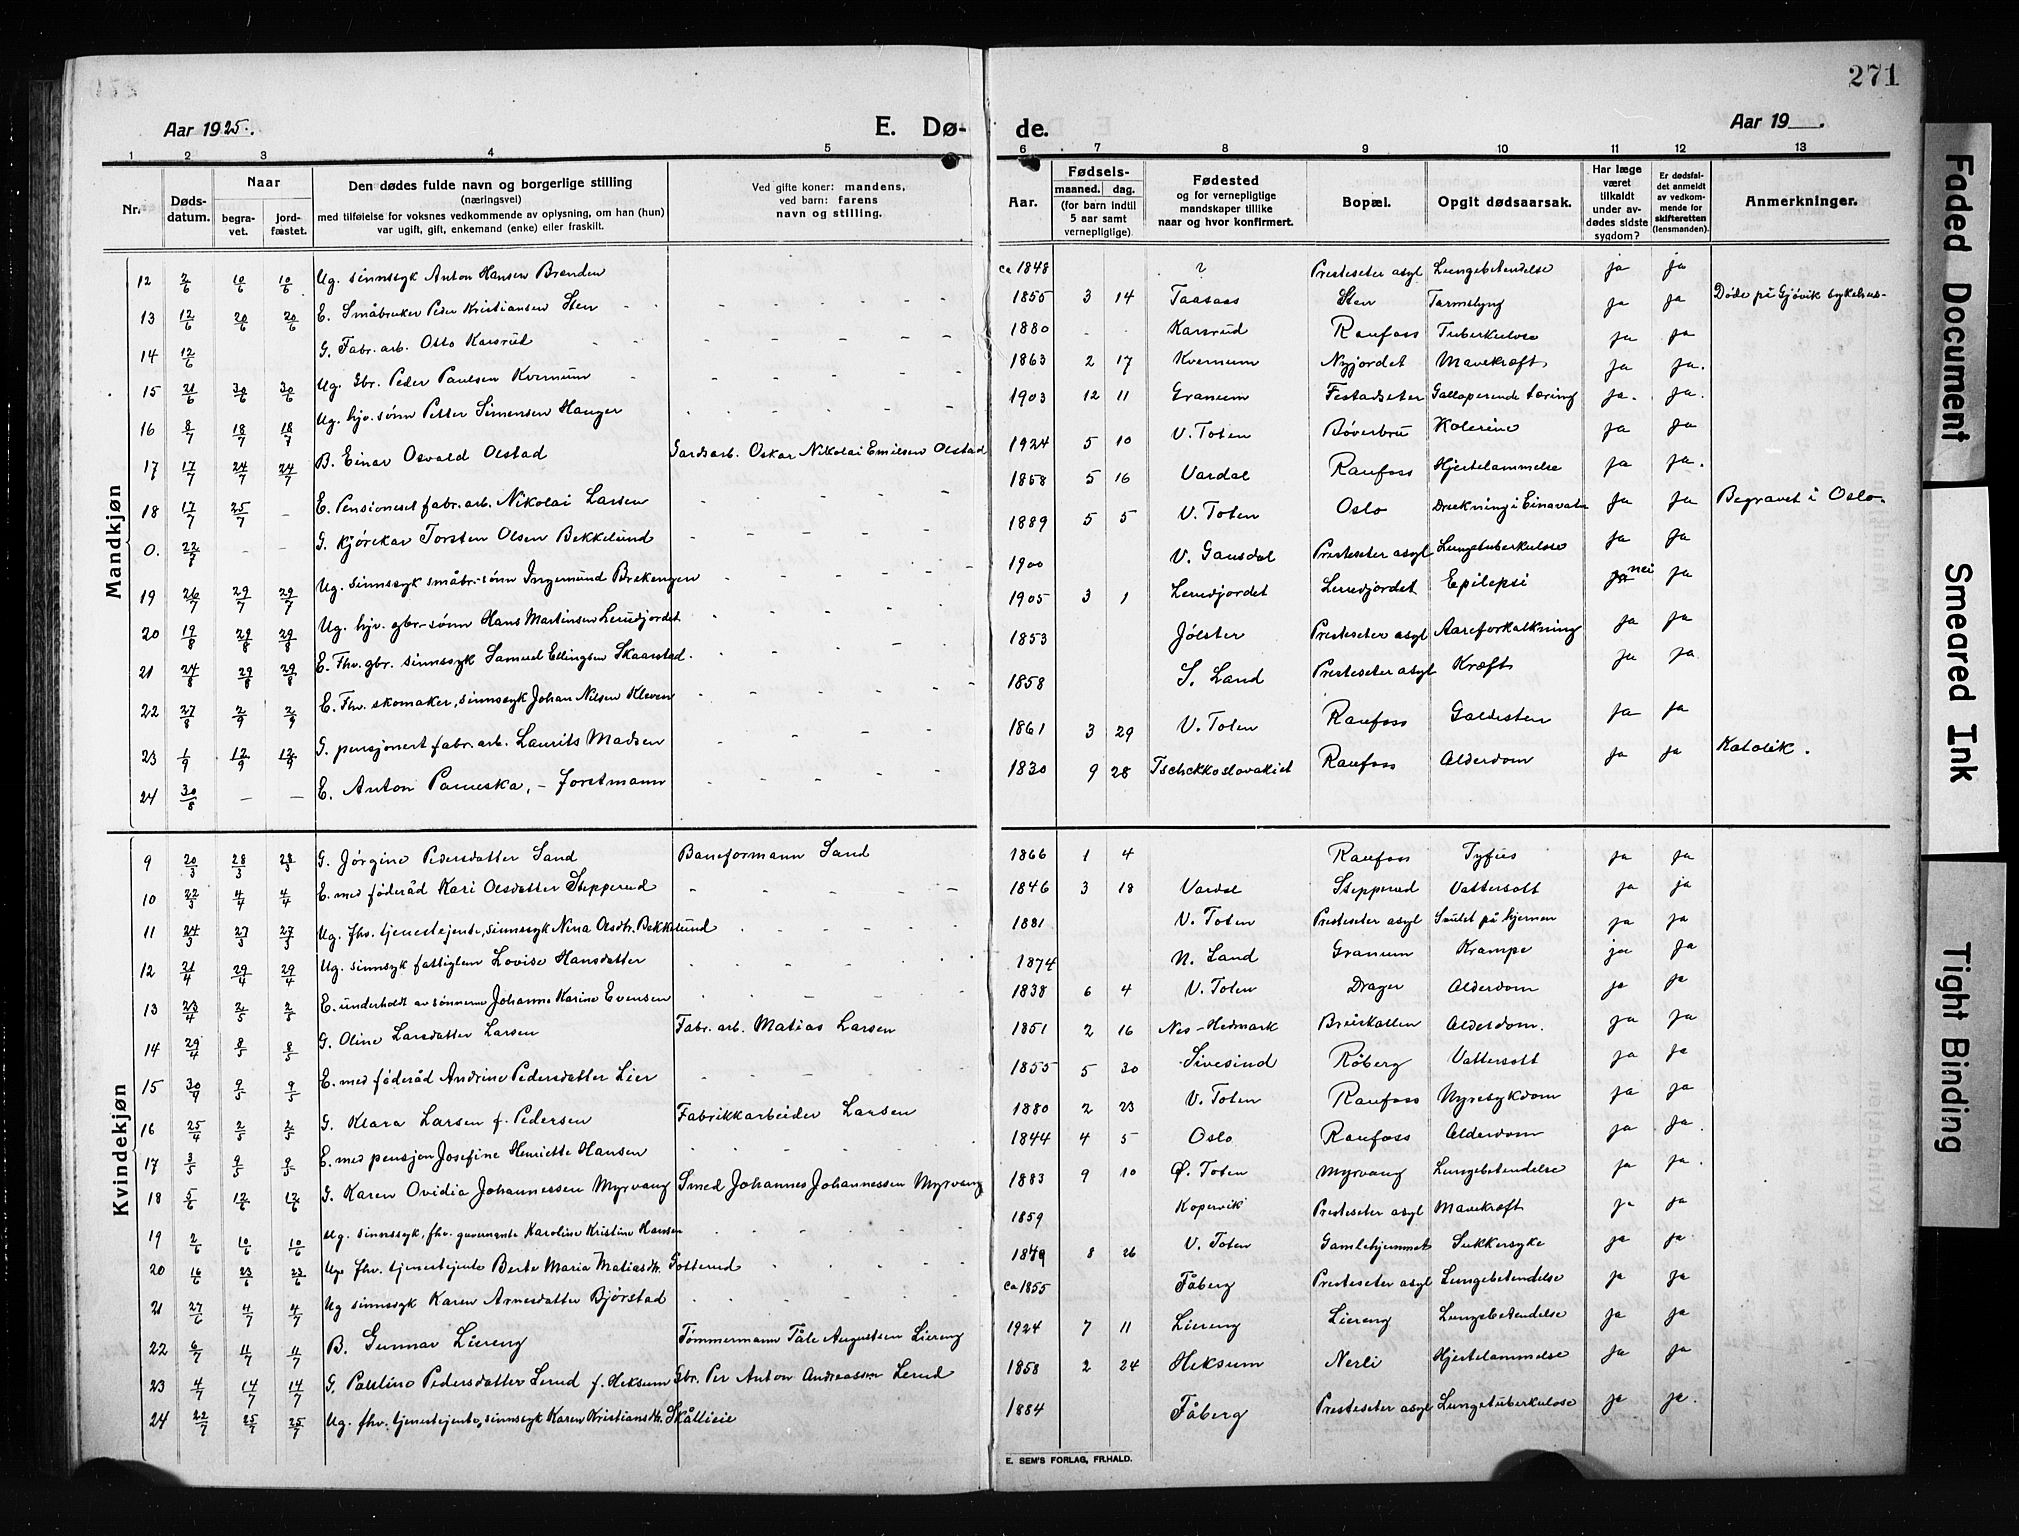 271
Aar 1925. E. Dø- de. Aar 19 .
1 2 3 4 5 6 7 8 9 10 11 12 13
Nr. Døds-datum. Naar begra-vet. jord-fæstet. Den dødes fulde navn og borgerlige stilling (næringsvei) med tilføielse for voksnes vedkommende av oplysning, om han (hun) var ugift, gift, enkemand (enke) eller fraskilt. Ved gifte koner: mandens, ved barn: farens navn og stilling. Aar. Fødsels- maaned. dag. (for barn indtil 5 aar samt vernepligtige) Fødested og for vernepligtige mandskaper tillike naar og hvor konfirmert. Bopæl. Opgit dødsaarsak. Har læge været tilkaldt under av-dødes sidste sygdom? Er dødsfal-det anmeldt av vedkom-mende for skifteretten (lensmanden). Anmerkninger.
Mandkjøn
12 2/6 10/6 10/6 Ug. sinnssyk Anton Hansen Brenden ca 1848 ? Presteseter asyl Lungebetendelse ja ja
13 12/6 20/6 20/6 E. Småbruker Peder Kristiansen Sten 1855 3 14 Taasaas Sten Tarmslyng ja ja Døde på Gjøvik sykehus-
14 12/6 G. Fabr. arb. Otto Karsrud 1880 Karsrud Raufoss Tuberkulose ja ja
15 21/6 30/6 30/6 Ug. Gbr. Peder Paulsen Kvernum 1863 2 17 Kvernum Nyjordet Mavekræft ja ja.
16 8/7 18/7 18/7 Ug. hjv. sønn Petter Simensen Hauger 1903 12 11 Granum Festadseter Galloperende tæring ja. ja.
17 17/7 24/7 24/7 B. Einar Osvald Olstad Gardsarb. Oskar Nikolai Emilsen Olstad 1924 5 10 V. Toten Bøverbru Kolerine ja ja
18 17/7 25/7 - E. Pensioneset fabr. arb. Nikolai Larsen 1858 5 16 Vardal Raufoss Hjertelammelse ja ja.
0. 22/7 - - G. Kjørekar Torsten Olsen Bekkelund 1889 5 5 V. Toten Oslo Druknings i Einavatn ja ja Begravet i Oslo.
19 26/7 29/7 29/7 Ug. sinnssyk småbr.-sønn Ingemund Brekengen 1900 V. Gausdal Presteseter asyl Lungetuberkulose ja ja
20 19/8 29/8 29/8 Ug. hjv. gbr-sønn Hans Martinsen Lerudjordet 1905 3 1 Leruedjordet Leruedjordet Epilepsi ja nei ja
21 24/8 29/8 29/8 E. Fhv. gbr. sinnssyk Samuel Ellingsen Skaarstad 1853 Jølster Presteseter asyl Aareforkalkning ja ja
22 27/8 2/9 2/9 E. Fhv. skomaker, sinnssyk Johan Nilsen Kleven 1858 S. Land Presteseter asyl Kræft ja ja
23 1/9 12/9 12/9 G. pensjonert fabr. arb. Laurits Madsen 1861 3 29 V. Toten Raufoss Galdesten ja ja
24 30/8 - - E. Anton Pameska, - forstmann 1830 9 28 Tschekkoslovakiet Raufoss Alderdom ja ja Katolik.
Kvindekjøn
9 20/3 28/3 28/3 G. Jørgine Pedersdatter Sand Baneformann Sand 1866 1 4 Raufoss Tyfus ja ja
10 22/3 4/4 4/4 E. med føderåd Kari Olsdatter Stepperud 1846 3 18 Vardal Stepperud Vattersott ja ja
11 24/3 27/3 27/3 Ug. fhv. tjenestejente, sinnssyk Nina Olsdtr. Bekkelund 1881 V. Toten Presteseter asyl Svulst på hjernen ja ja
12 21/4 29/4 29/4 Ug. sinnsyk fattiglem Lovise Hansdatter 1874 N. Land Granum Krampe ja ja
13 23/4 2/5 2/5 E. underholdt av sønnerne Johanne Karine Evensen 1838 6 4 V. Toten Drager Alderdom ja ja
14 29/4 8/5 8/5 G. Oline Larsdatter Larsen Fabr. arb. Matias Larsen 1851 2 16 Nes-Hedmark Breiskallen Alderdom. ja ja
15 30/4 9/5 9/5 E. med føderåd Andrine Pedersdatter Lier 1855 5 30 Sivesind Røberg Vattersott ja ja
16 25/4 2/5 2/5 G. Klara Larsen f. Pedersen Fabrikkarbeider Larsen 1880 2 23 V. Toten Raufoss Nyresykdom ja ja
17 3/5 9/5 9/5 E. med pensjon Josefine Henriette Hansen 1844 4 5 Oslo Raufoss Alderdom ja ja.
18 5/6 12/6 12/6 G. Karen Ovidia Johannessen Myrvang Smed Johannes Johannessen Myrvang 1883 9 10 Ø. Toten Myrvang Lungebetendelse ja ja.
19 2/6 10/6 10/6 Ug. sinnssyk, fhv. guvernante Karoline Kristine Hansen 1859 Kopervik Presteseter asyl Mavekræft ja ja
20 16/6 23/6 23/6 Ug. fhv. tjenestejente Berte Maria Matiasdtr. Gotterud 1849 8 26 V. Toten Gamlehjemmet Sukkersyke ja ja
21 27/6 4/7 4/7 Ug sinnssyk Karen Arnesdatter Bjørstad ca 1855 Fåberg Presteseter asyl Lungebetendelse ja ja
22 6/7 11/7 11/7 B. Gunnar Liereng Tømmermann Tåle Augustsen Liereng 1924 7 11 Liereng Liereng Lungebetendelse ja ja
23 4/7 14/7 14/7 G. Pauline Pedersdatter Lerud f. Heksum Gbr. Per Anton Andreassen Lerud 1858 2 24 Heksum Nerli Hjertelammelse ja ja
24 22/7 25/7 25/7 Ug. fhv. tjenestejente, sinnssyk Karen Kristiansdtr. Skållieie 1884 Fåberg Presteseter asyl Lungetuberkulose ja ja.
E. SEM'S FORLAG, FR.HALD.
Faded Document
Smeared Ink
Tight Binding